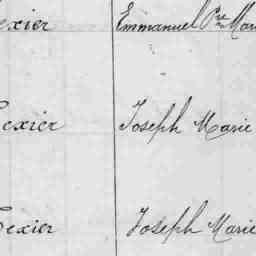 exier Emmanuel Pre Mari
exier Joseph Marie
Texier Joseph Marie